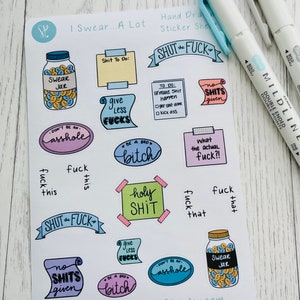 I Swear A Lot
Hand Dra
Sticker She
Shit To Do:
SHUT the FUCK UP
SWEAR
JAR
give
LESS
FUCKS
TO DO:
MAKE SHIT
happen
KICK ASS
no
SHITS
given
DON'T BE AN
asshole
BE A BAD
bitch
what
the
actual
fuck?!
fuck
this
fuck
this
holy
SHIT
fuck
that
fuck
that
SHUT the FUCK UP
give
LESS
FUCKS
SWEAR
JAR
no
SHITS
given
BE A BAD
bitch
DON'T BE AN
asshole
MILDLIN